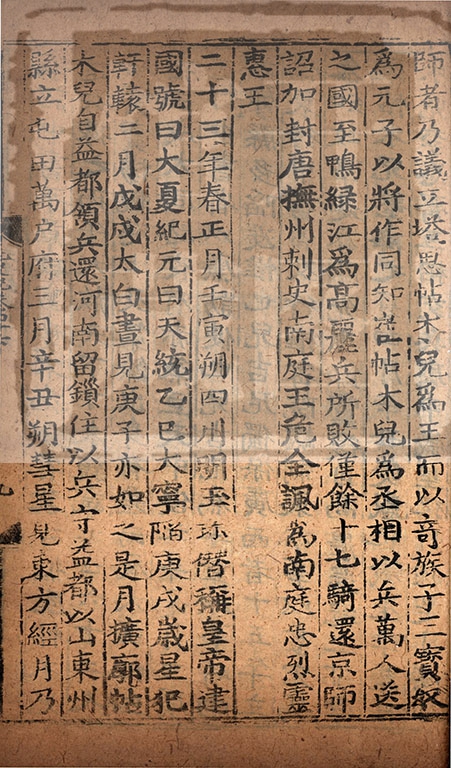 師者乃議立塔思帖木兒爲王而以竒族子三寶奴
爲元子以將作同知崔帖木兒爲丞相以兵萬人送
之國至鴨緑江爲髙麗兵所敗僅餘十七騎還京師
詔加封唐撫州刺史南庭王危全諷爲南庭忠烈靈
惠王
二十三年春正月壬寅朔四川明玉珍僭稱皇帝建
國號曰大夏紀元曰天統乙巳大寧陷庚戌歲星犯
軒轅二月戊戌太白晝見庚子亦如之是月擴廓帖
木兒自益都領兵還河南留鎖住以兵守益都以山東州
縣立屯田萬户府三月辛丑朔彗星見東方經月乃
九